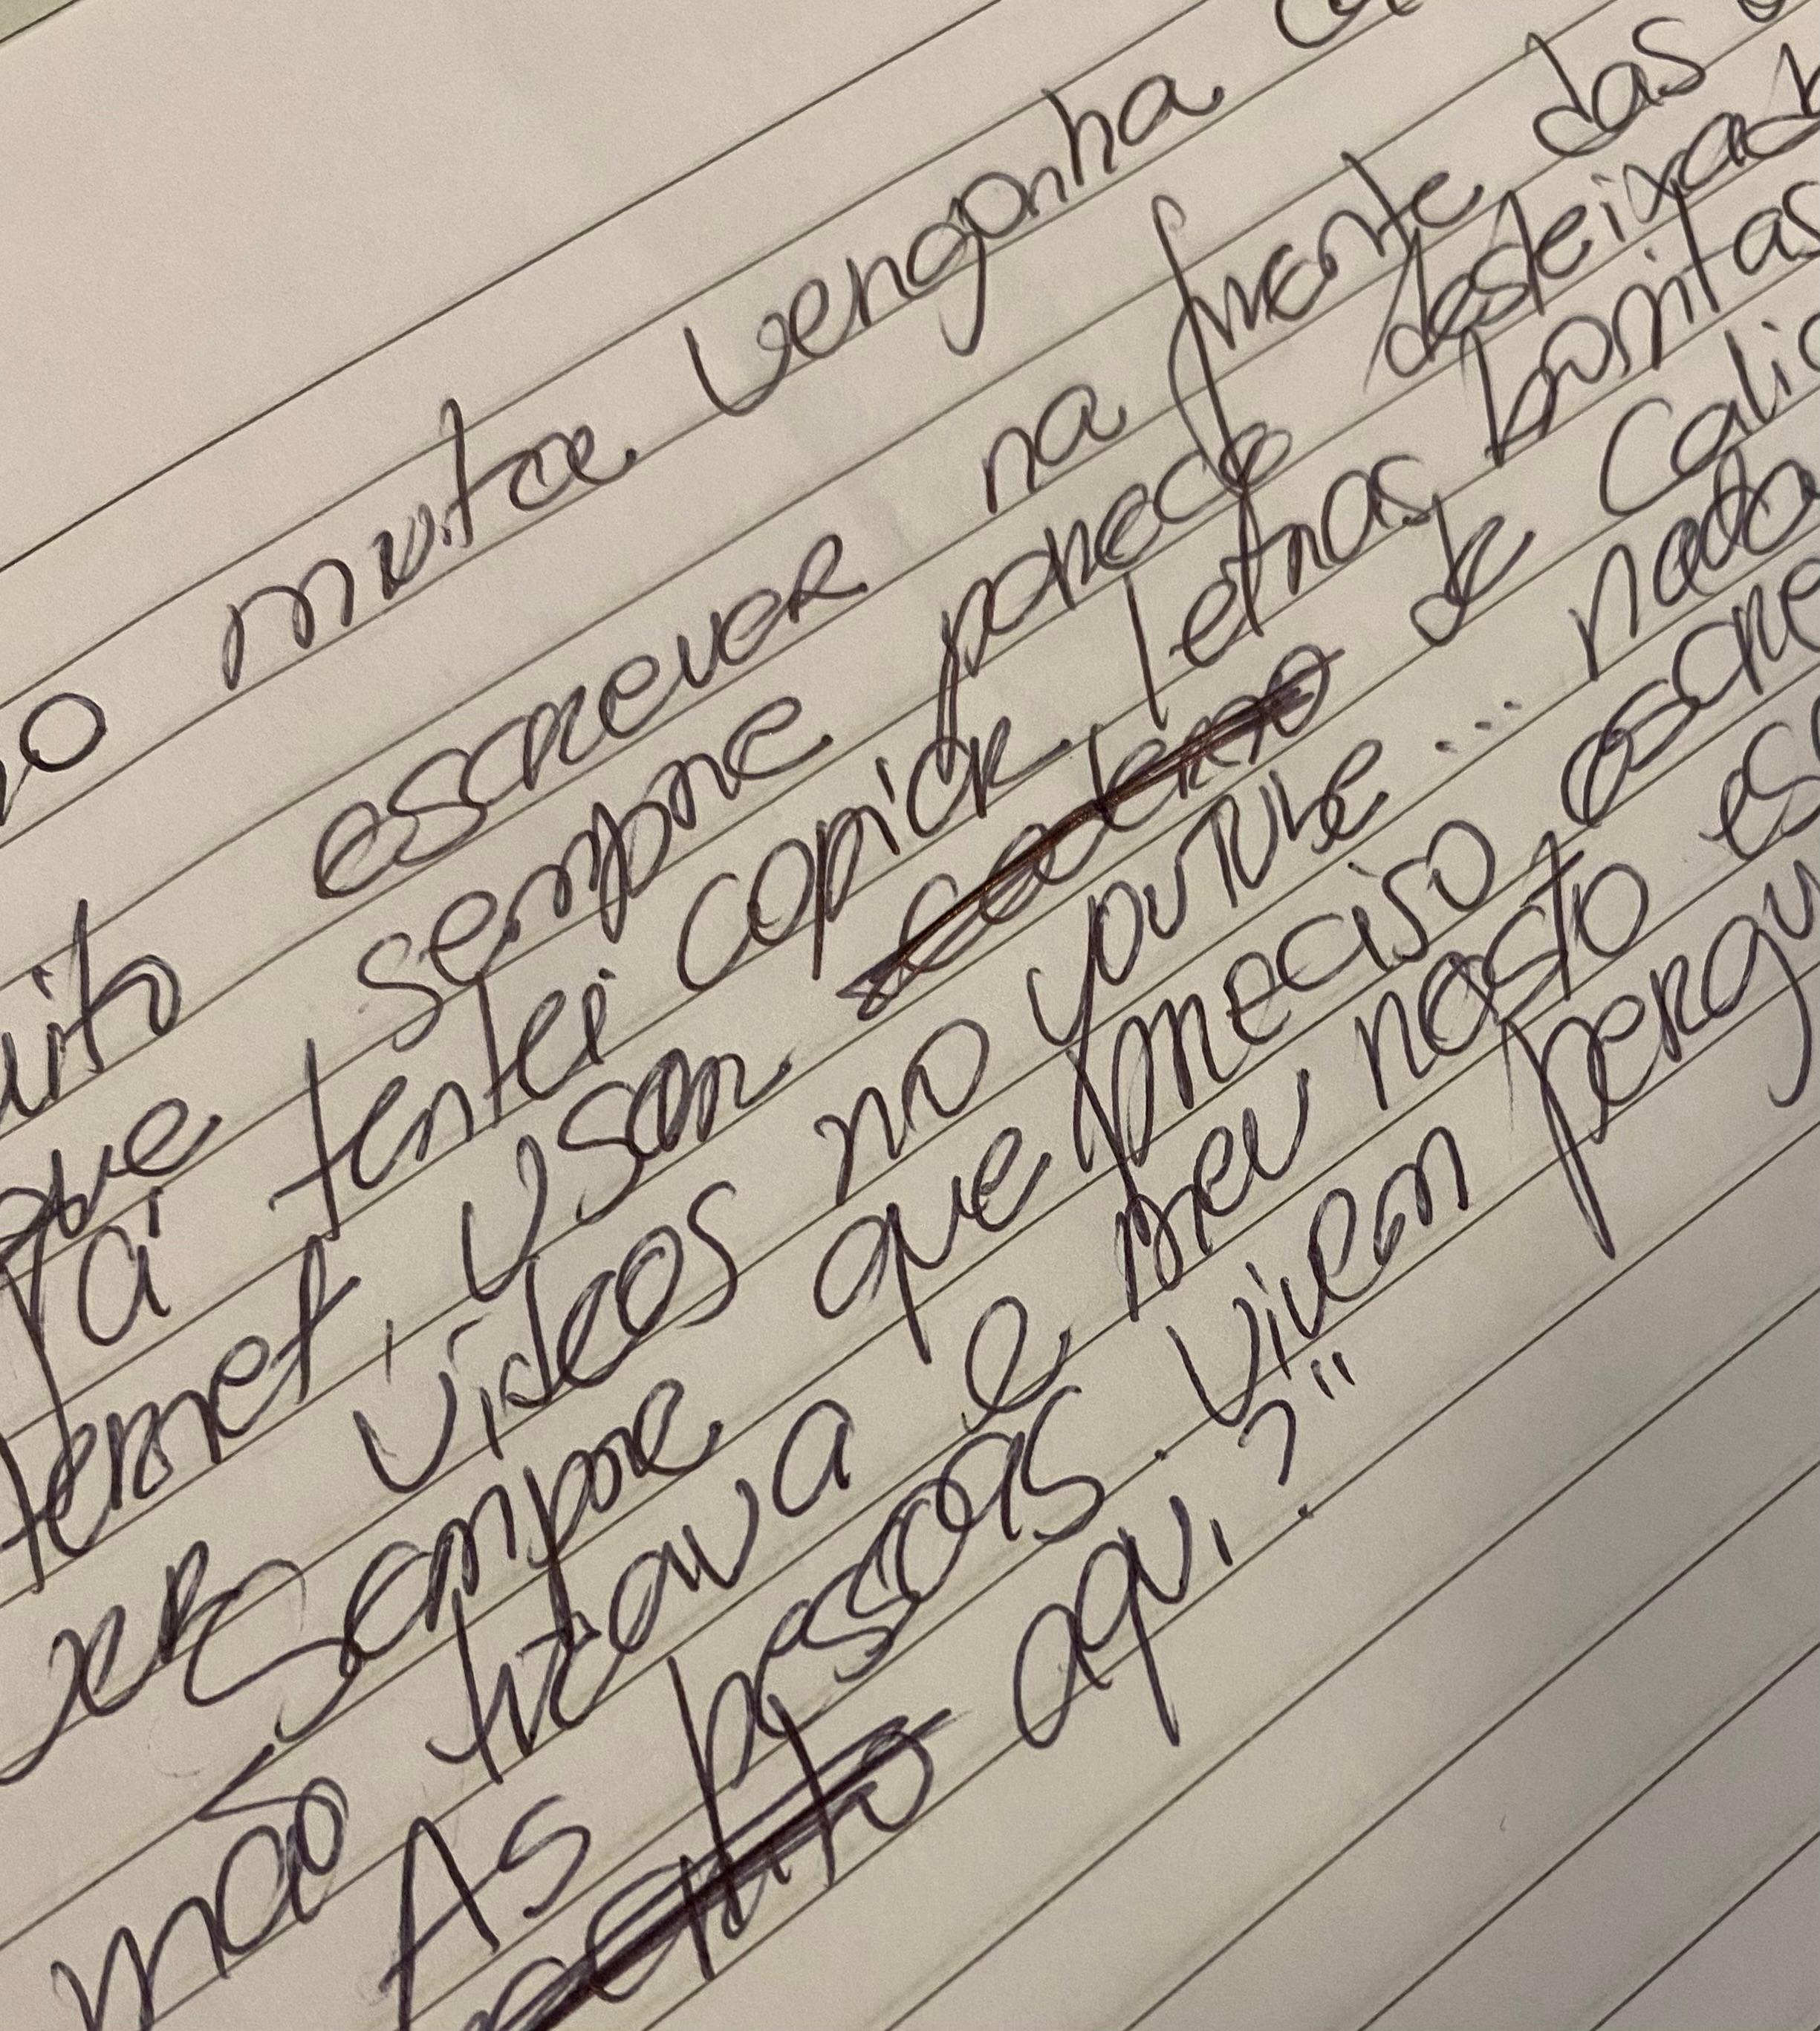 muita vergonha
escrever na frente das
que sempre parece desleixad
Já tentei copiar letras bonitas
ternet, usar caderno de Calig
ver videos no YouTube... nada
Sempre que preciso escre
mão trava e meu rosto es
As pessoas vivem pergu
aqui?"